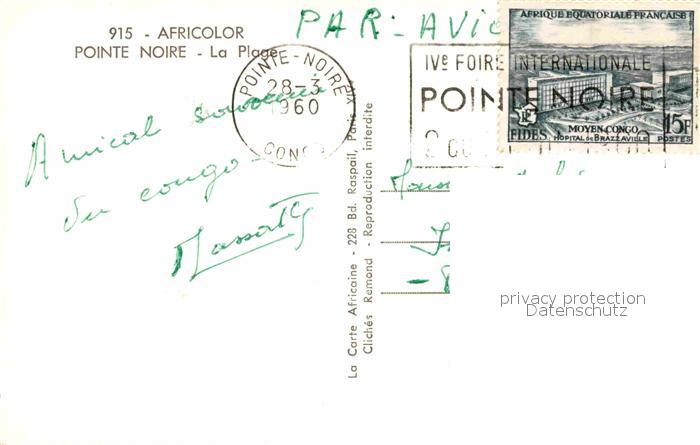 915 - AFRICOLOR
POINTE NOIRE - La Plage
PAR-AVIO
POINTE-NOIRE
28-3
1960
CONGO
IVe FOIRE INTERNATIONALE
POINTE NOIRE
AFRIQUE EQUATORIALE FRANÇAISE
FIDES
MOYEN-CONGO
HOPITAL DE BRAZZAVILLE
15F
POSTES
Amical souvenir
du congo
La Carte Africaine - 228 Bd. Raspail, Paris XIVe
Clichés Remond - Reproduction interdite
privacy protection
Datenschutz